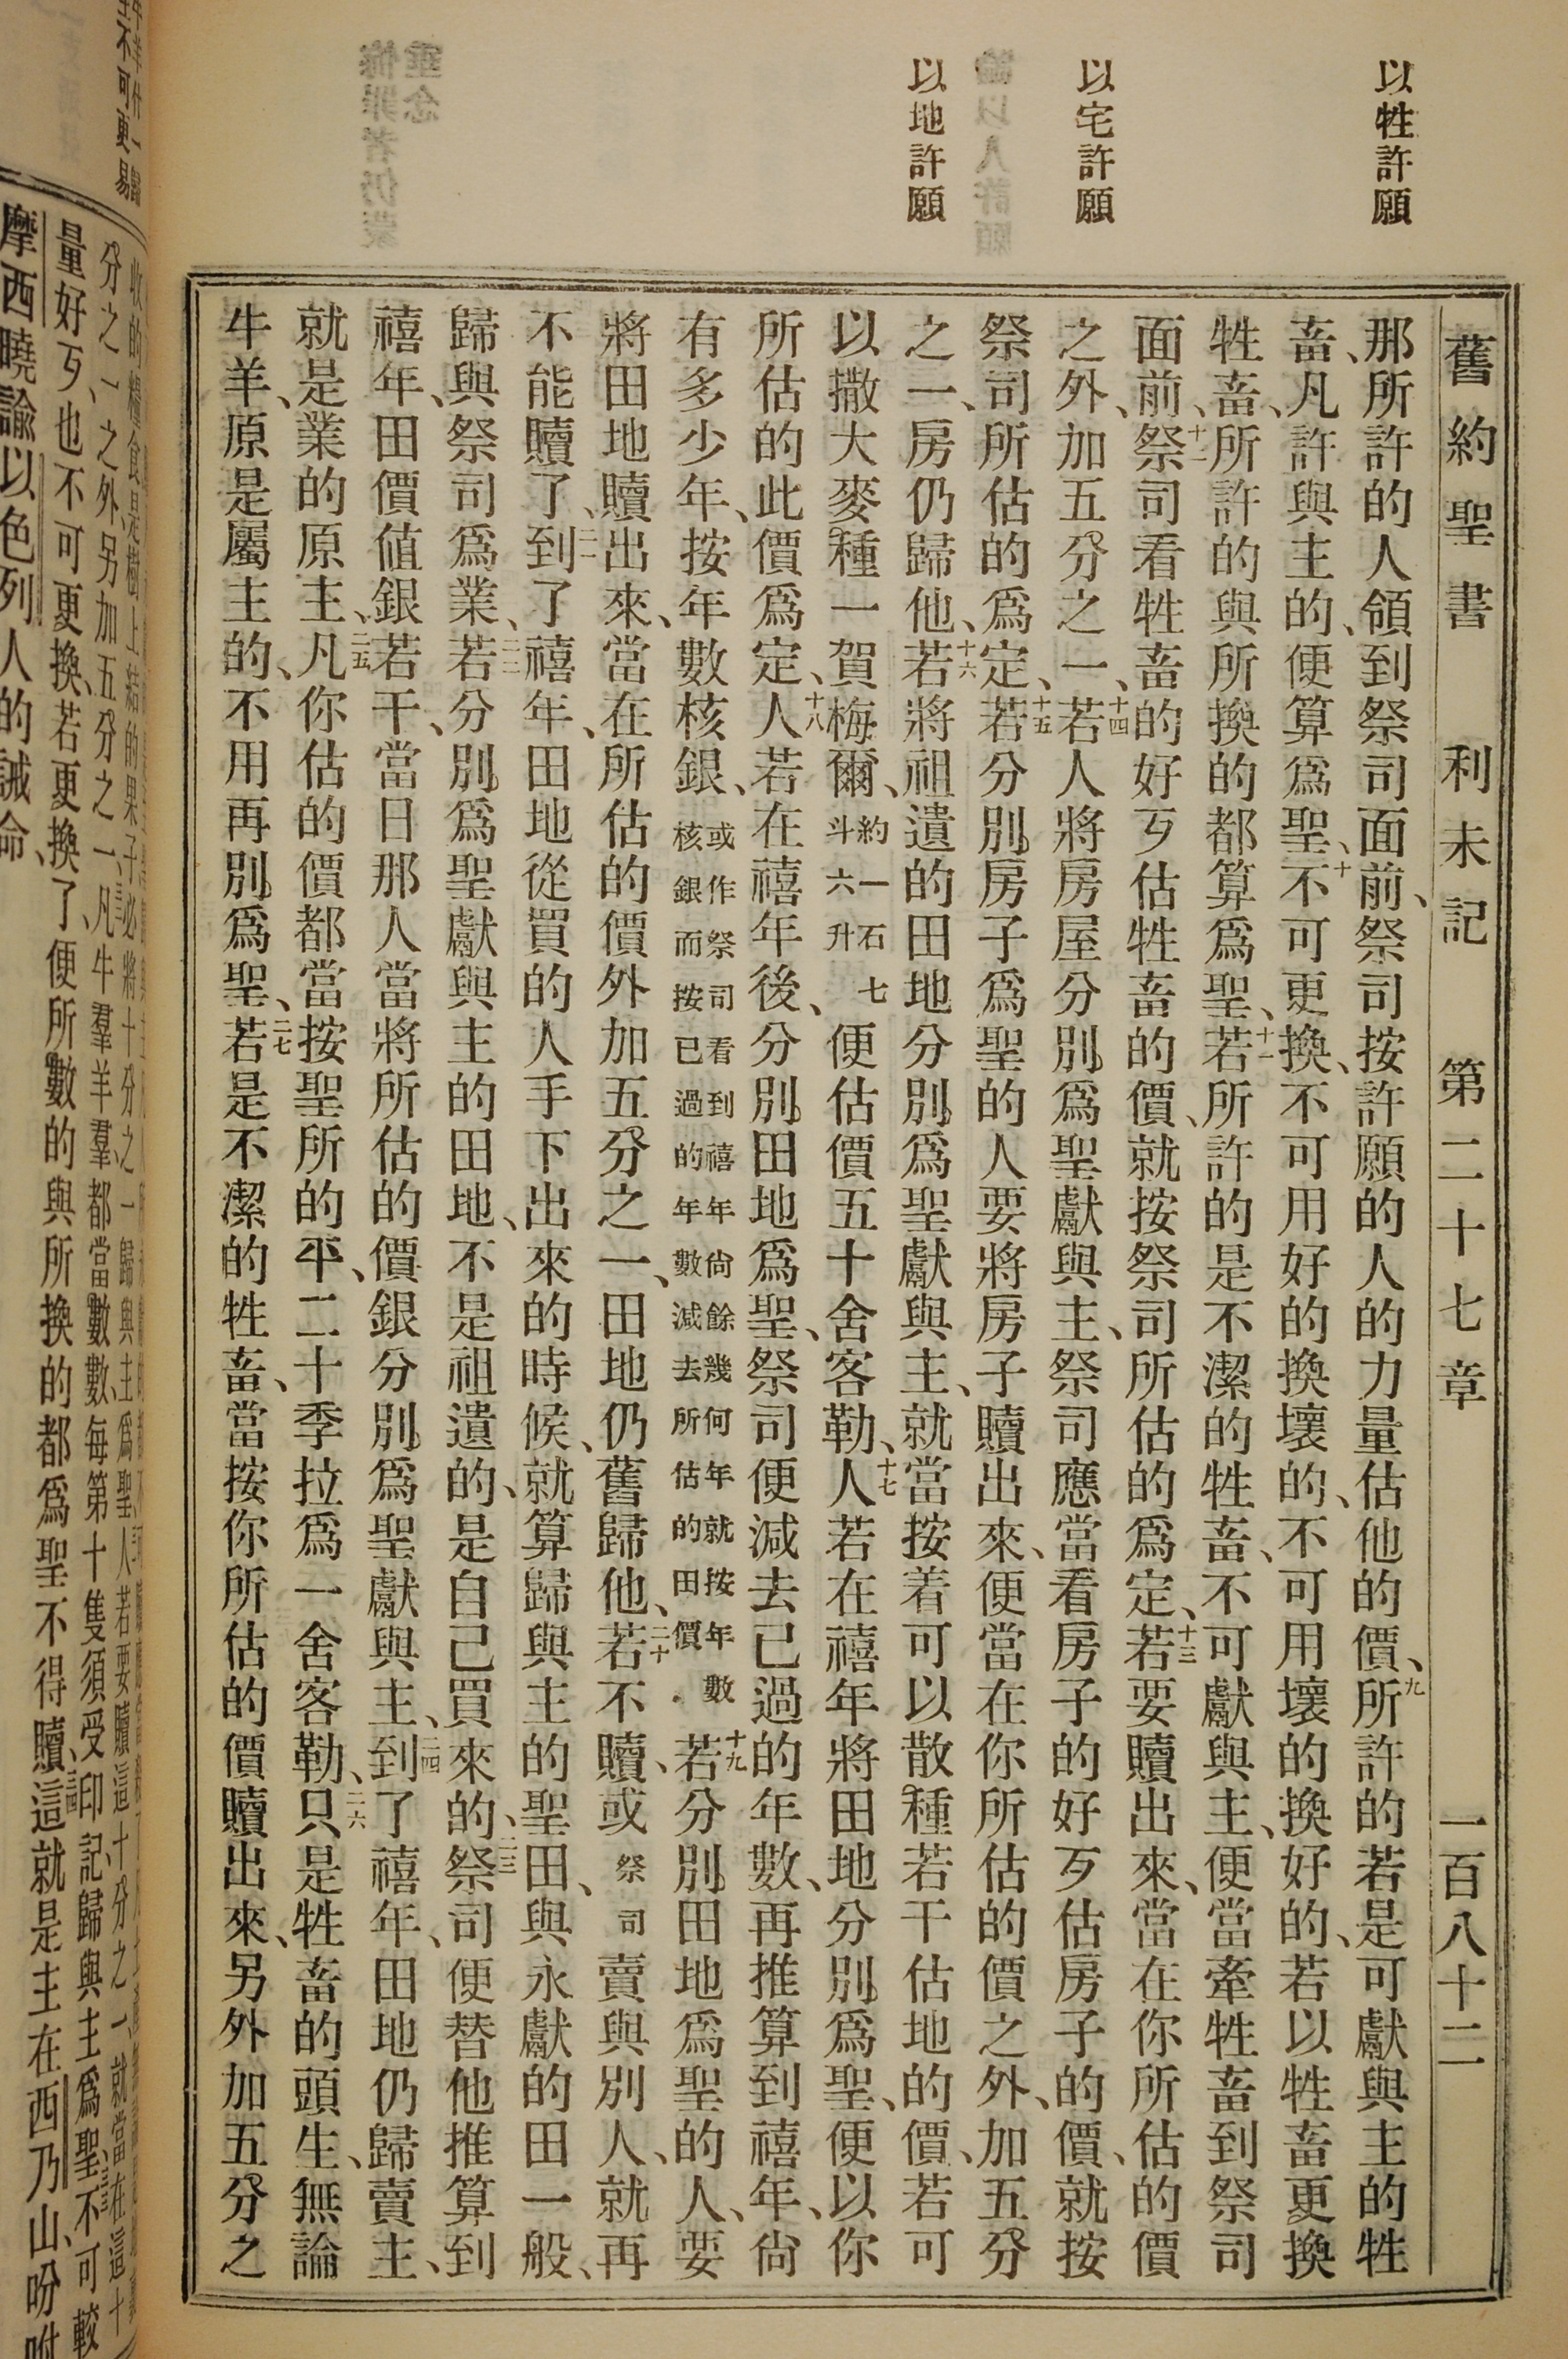 以牲許願
以宅許願
以地許願
舊約聖書 利未記 第二十七章 一百八十二
那所許的人領到祭司面前、祭司按許願的人的力量估他的價、九所許的若是可獻與主的牲
畜、凡許與主的、便算爲聖、十不可更換、不可用好的換壞的、不可用壞的換好的、若以牲畜更換
牲畜、所許的與所換的都算爲聖、十一若所許的是不潔的牲畜、不可獻與主、便當牽牲畜到祭司
面前、十二祭司看牲畜的好歹估牲畜的價、就按祭司所估的爲定、十三若要贖出來、當在你所估的價
之外、加五分之一、十四若人將房屋分別爲聖獻與主、祭司應當看房子的好歹估房子的價、就按
祭司所估的爲定、十五若分別房子爲聖的人要將房子贖出來、便當在你所估的價之外、加五分
之一、房仍歸他、十六若將祖遺的田地分別爲聖獻與主、就當按着可以散種若干估地的價、若可
以撒大麥種一賀梅爾、約一石七斗六升便估價五十舍客勒、十七人若在禧年將田地分別爲聖、便以你
所估的此價爲定、十八人若在禧年後、分別田地爲聖、祭司便減去已過的年數、再推算到禧年、尙
有多少年、按年數核銀、或作祭司看到禧年尙餘幾何年就按年數核銀而按已過的年數減去所估的田價十九若分別田地爲聖的人、要
將田地贖出來、當在所估的價外加五分之一、田地仍舊歸他、二十若不贖、或祭司賣與別人、就再
不能贖了、二一到了禧年、田地從買的人手下出來的時候、就算歸與主的聖田、與永獻的田一般、
歸與祭司爲業、二二若分別爲聖獻與主的田地、不是祖遺的、是自己買來的、二三祭司便替他推算到
禧年、田價値銀若干、當日那人當將所估的價銀分別爲聖獻與主、二四到了禧年、田地仍歸賣主、
就是業的原主、二五凡你估的價都當按聖所的平、二十季拉爲一舍客勒、二六只是牲畜的頭生、無論
牛羊、原是屬主的、不用再別爲聖、二七若是不潔的牲畜、當按你所估的價贖出來、另外加五分之
分之一之外、另加五分之一、凡牛羣羊羣、都當數數、每第十隻須受印記、歸與主爲聖、不可較
量好歹、也不可更換、若更換了、便所數的與所換的都爲聖不得贖、這就是主在西乃山、吩咐
摩西曉諭以色列人的誡命、